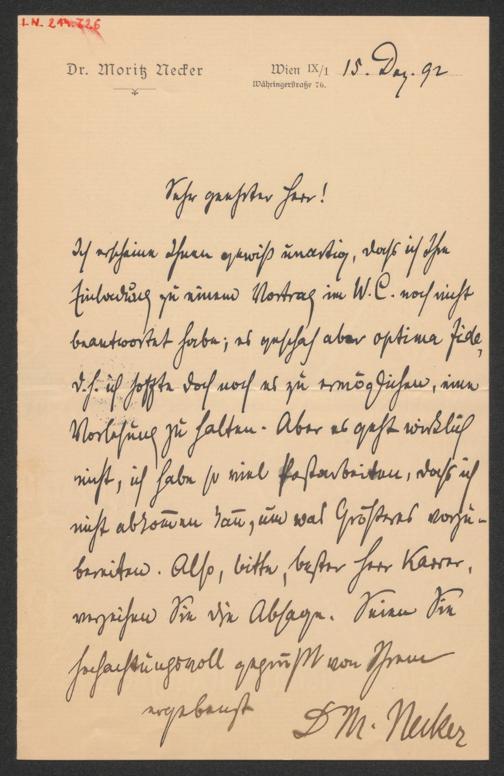 I.N. 214.726
Dr. Moritz Necker
Wien IX/1 15. Dez. 92
Währingerstraße 76.
Sehr geehrter Herr!
Ich erscheine Ihnen gewiß unartig, dass ich Ihre
Einladung zu einem Vortrag im W.C. noch nicht
beantwortet habe; es geschah aber optima fide,
d.h. ich hoffte doch noch es zu ermöglichen, eine
Vorlesung zu halten. Aber es geht wirklich
nicht, ich habe so viel Postarbeiten, dass ich
nicht abkom̅en kan̅, um was Größeres vorzu-
bereiten. Also, bitte, bester Herr Karrer,
verzeihen Sie die Absage. Seien Sie
hochachtungsvoll gegrüßt von Ihrem
ergebenst
Dr M. Necker